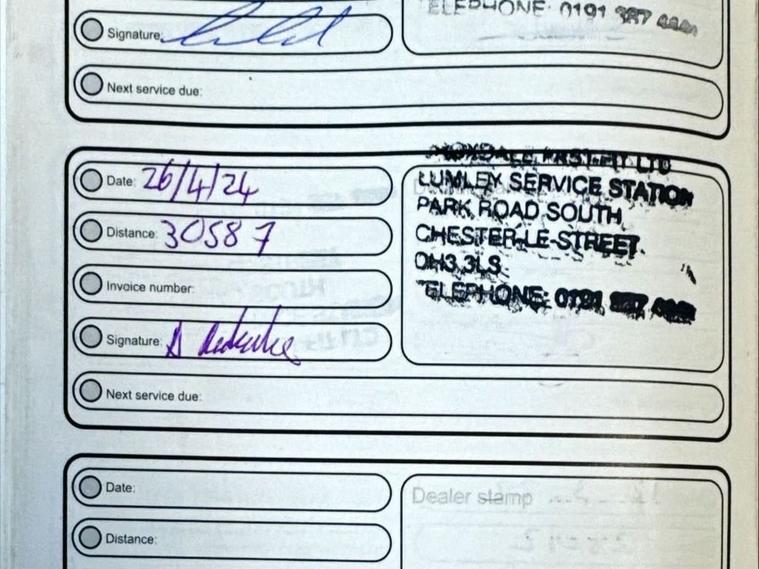 TELEPHONE: 0191 387
Signature:
Next service due:
Date: 26/4/24
Distance: 30587
Invoice number:
Signature:
Next service due:
LTD
LUMLEY SERVICE STATION
PARK ROAD SOUTH
CHESTER-LE-STREET
DH3 3LS
TELEPHONE: 0191 387
Date:
Distance:
Dealer stamp